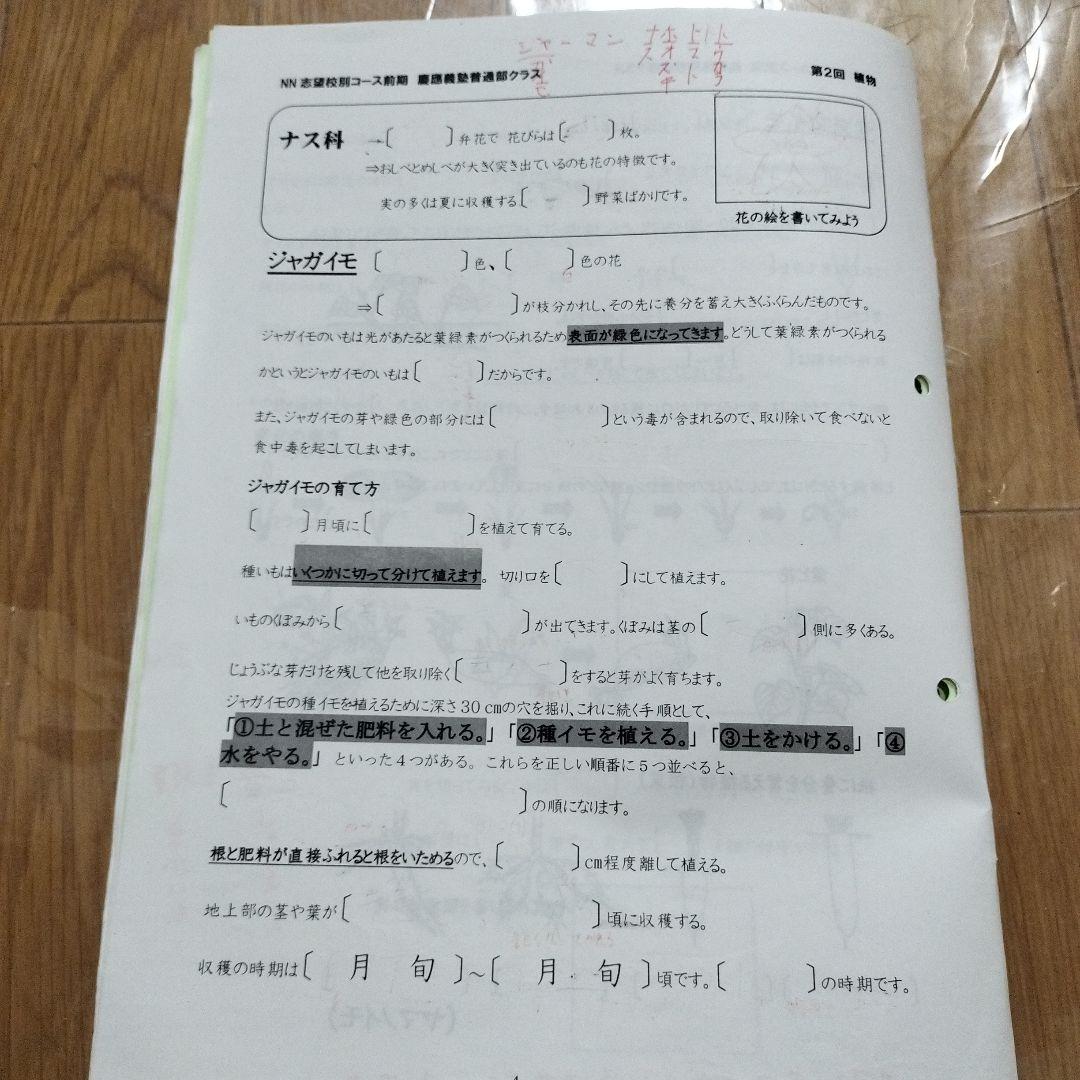 ジャーマン ナス ホオズキ トマト トウガラシ
NN 志望校別コース前期 慶應義塾普通部クラス 第2回 植物
ナス科 →〔 〕弁花で 花びらは〔 〕枚。
⇒おしべとめしべが大きく突き出ているのも花の特徴です。
実の多くは夏に収穫する〔 〕野菜ばかりです。
花の絵を書いてみよう
ジャガイモ 〔 〕色、〔 〕色の花
⇒〔 〕が枝分かれし、その先に養分を蓄え大きくふくらんだものです。
ジャガイモのいもは光があたると葉緑素がつくられるため表面が緑色になってきます。どうして葉緑素がつくられる
かというとジャガイモのいもは〔 〕だからです。
また、ジャガイモの芽や緑色の部分には〔 〕という毒が含まれるので、取り除いて食べないと
食中毒を起こしてしまいます。
ジャガイモの育て方
〔 〕月頃に〔 〕を植えて育てる。
種いもはいくつかに切って分けて植えます。 切り口を〔 〕にして植えます。
いものくぼみから〔 〕が出てきます。くぼみは茎の〔 〕側に多くある。
じょうぶな芽だけを残して他を取り除く〔 〕をすると芽がよく育ちます。
ジャガイモの種イモを植えるために深さ30㎝の穴を掘り、これに続く手順として、
「①土と混ぜた肥料を入れる。」「②種イモを植える。」「③土をかける。」「④
水をやる。」といった4つがある。これらを正しい順番に5つ並べると、
〔 〕の順になります。
根と肥料が直接ふれると根をいためるので、〔 〕cm程度離して植える。
地上部の茎や葉が〔 〕頃に収穫する。
収穫の時期は〔 月 旬 〕～〔 月 旬 〕頃です。〔 〕の時期です。